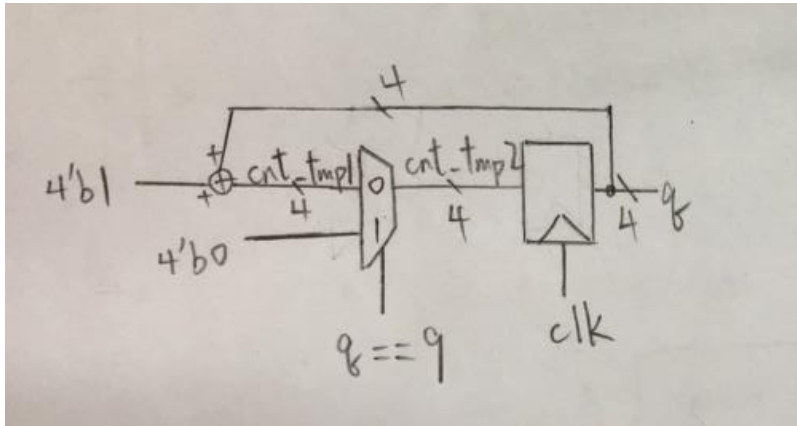 4
+
4'b1
+
+
cnt_tmp1
4
0
1
cnt_tmp2
4
4
q
4'b0
q==9
clk